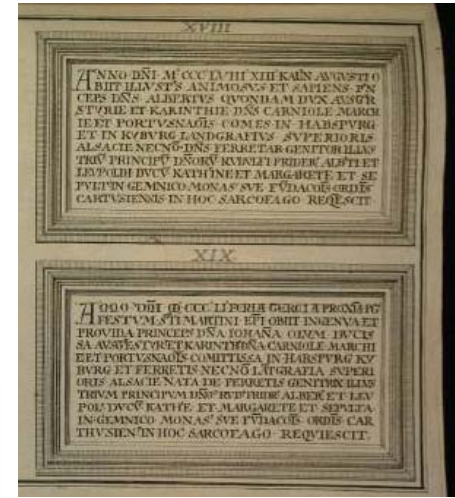 XVIII
ANNO DNI M CCC LVIII XIII KALN AVGVSTI O
BIIT ILLVSTS ANIMOSVS ET SAPIENS PN
CEPS DNS ALBERTVS QVONDAM DVX AVSTR
STYRIE ET KARINTHIE DNS CARNIOLE MARCH
IE ET PORTVSNAOIS COMES IN HABSPVRG
ET IN KYBVRG LANDGRAFIVS SVPERIORIS
ALSACIE NECNO DNS FERRETAR GENITOR ILLVS
TRIV PRINCIPV DNORV RVDOLFI FRIDERI ALBTI ET
LEVPOLDI DVCV KATHINE ET MARGARETE ET SE
PVLT IN GEMNICO MONAS SVE FVDACOIS ORDIS
CARTVSIENSIS IN HOC SARCOFAGO REQESCIT
XIX
ANNO DNI M CCC LI FERIA PROXIA PO
FESTVM STI MARTINI EPI OBIIT INGENVA ET
PROVIDA PRINCEPS DNA IOHANA DVCIS
SA AVSTE STYR ET KARINTH DNA CARNIOLE MARCHI
E ET PORTVSNAOIS COMITISSA IN HABSPVRG KY
BVRG ET FERRETIS NECNO LATGRAFIA SVPERI
ORIS ALSACIE NATA DE FERRETIS GENITRIX ILLVS
TRIVM PRINCIPVM DNOR RVD FRIDR ALBER ET LEV
POL DVCV KATHE ET MARGARETE ET SEPVLTA
IN GEMNICO MONAS SVE FVDACOIS ORDIS CAR
THVSIEN IN HOC SARCOFAGO REQVIESCIT